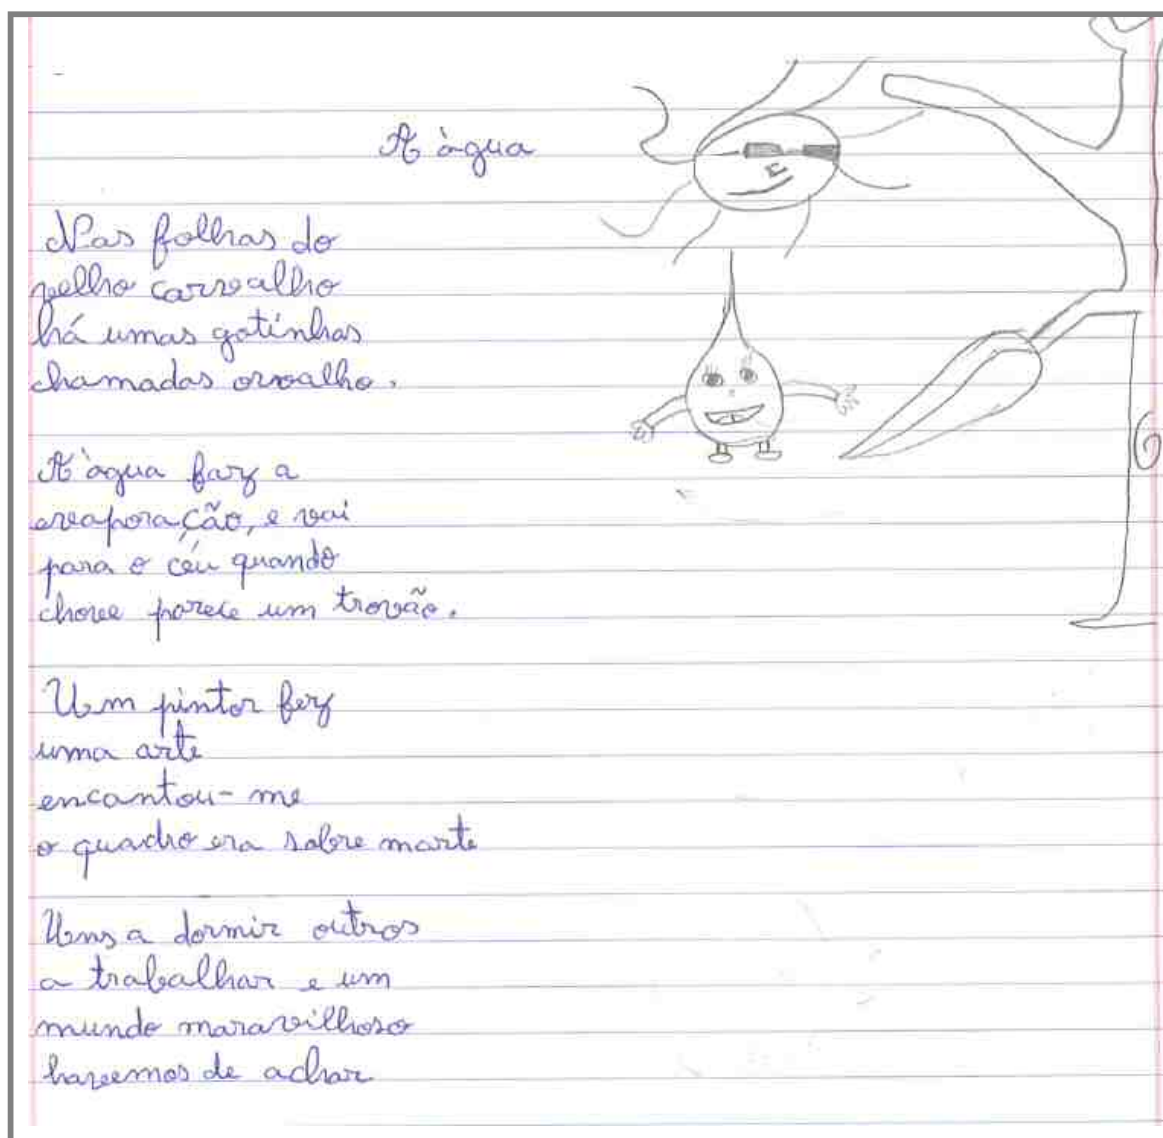 A àgua
Nas folhas do
velho carvalho
há umas gotinhas
chamadas orvalho.
A àgua faz a
evaporação, e vai
para o céu quando
chove parece um trovão.
Um pintor fez
uma arte
encantou-me
o quadro era sobre marte
Uns a dormir outros
a trabalhar e um
mundo maravilhoso
havemos de achar